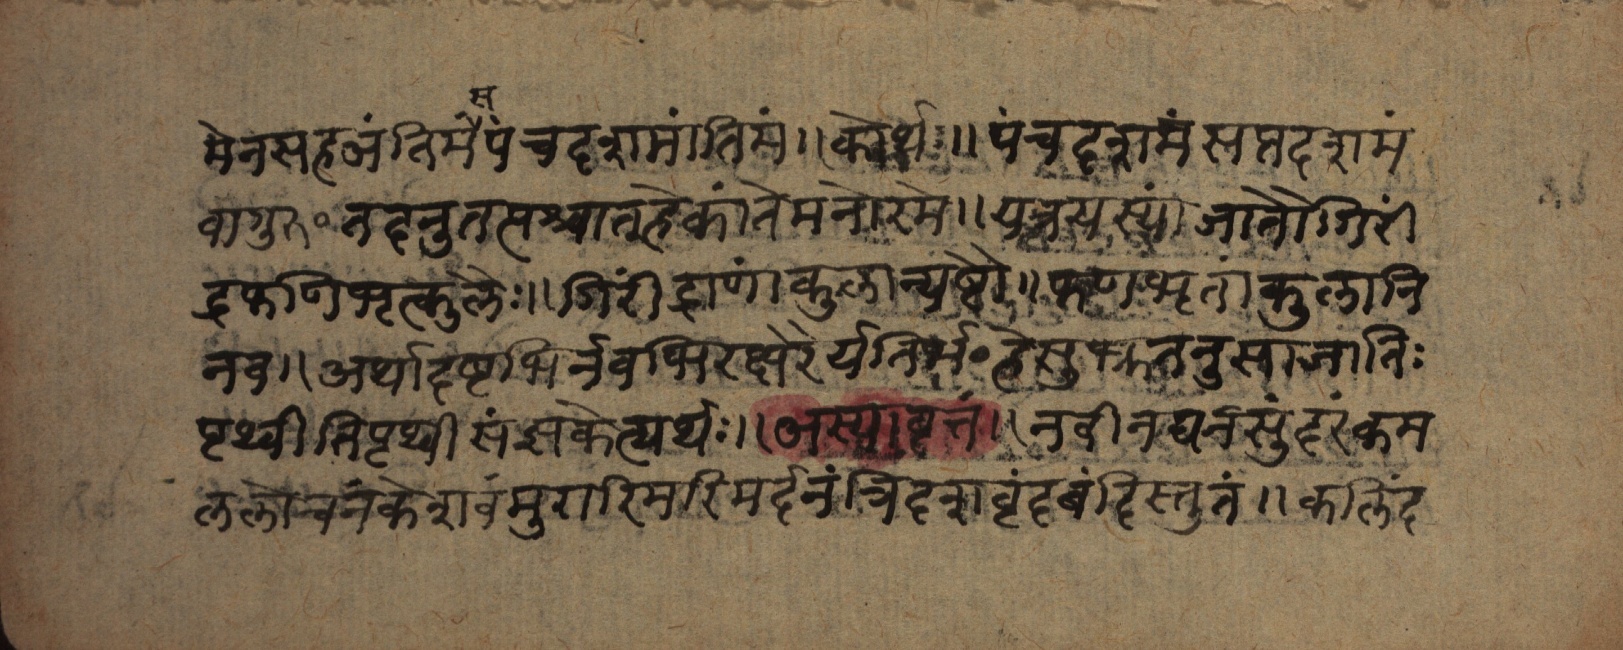 स
मेनसहजंतिमेपंचदशमांतिमं॥कोर्थः॥पंचदशमं सप्तदशमं
वागुरु॰नदनुतत्पश्चात्हेकांतेमनोरमे॥यत्रयस्यां जातौगिरीं
द्रफणिभृत्कुलैः॥गिरींद्राणां कुलान्यष्टौ॥फणभृतां कुलानि
नव॥अर्थादष्टभिर्नवभिरक्षरैर्यतिर्भ॰हेसुभ्रुतनुसाजातिः
पृथ्वीतिपृथ्वीसंज्ञकेत्यर्थः॥अस्यावृत्तं॥नवीनघनसुंदरंकम
ललोचनंकेशवंमुरारिमरिमर्दनंत्रिदशवृंदबंदिस्तुतं॥कलिंद